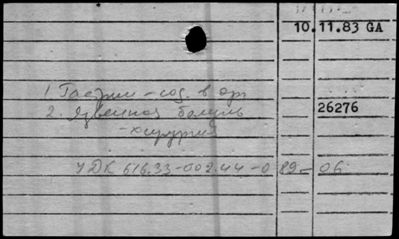 10.11.83 GA
1 Гастрин – сод. в орг
26276
2. Язвенная болезнь
– хирургия
УДК 616.33-002.44-089-06